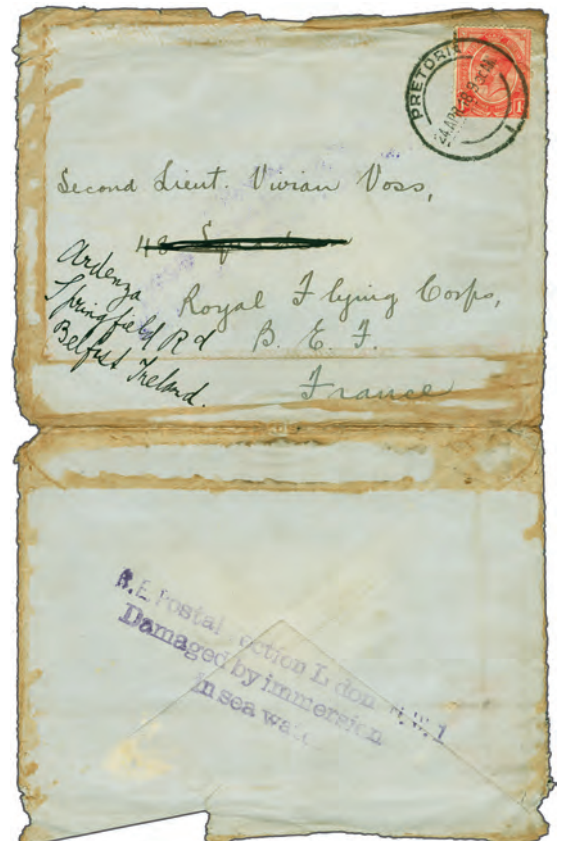 PRETORIA
24 APR 18 9
1
Second Lieut. Vivian Voss,
48
Royal Flying Corps,
B. E. F.
France
Ardenza
Springfield Rd
Belfast Ireland.
R.E. Postal ection L don N.W. 1
Damaged by immersion
in sea wa